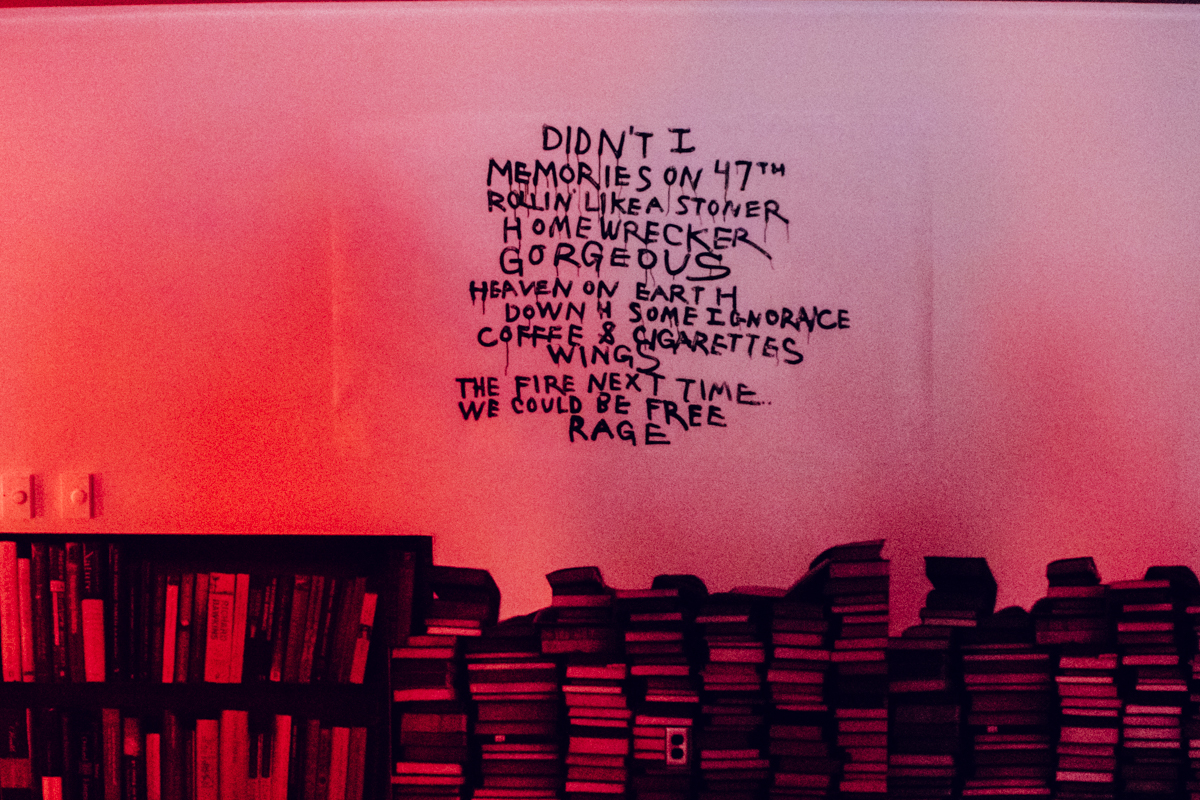 DIDN'T I
MEMORIES ON 47TH
ROLLIN' LIKE A STONER
HOMEWRECKER
GORGEOUS
HEAVEN ON EARTH
DOWN 4 SOME IGNORANCE
COFFEE & CIGARETTES
WINGS
THE FIRE NEXT TIME..
WE COULD BE FREE
RAGE